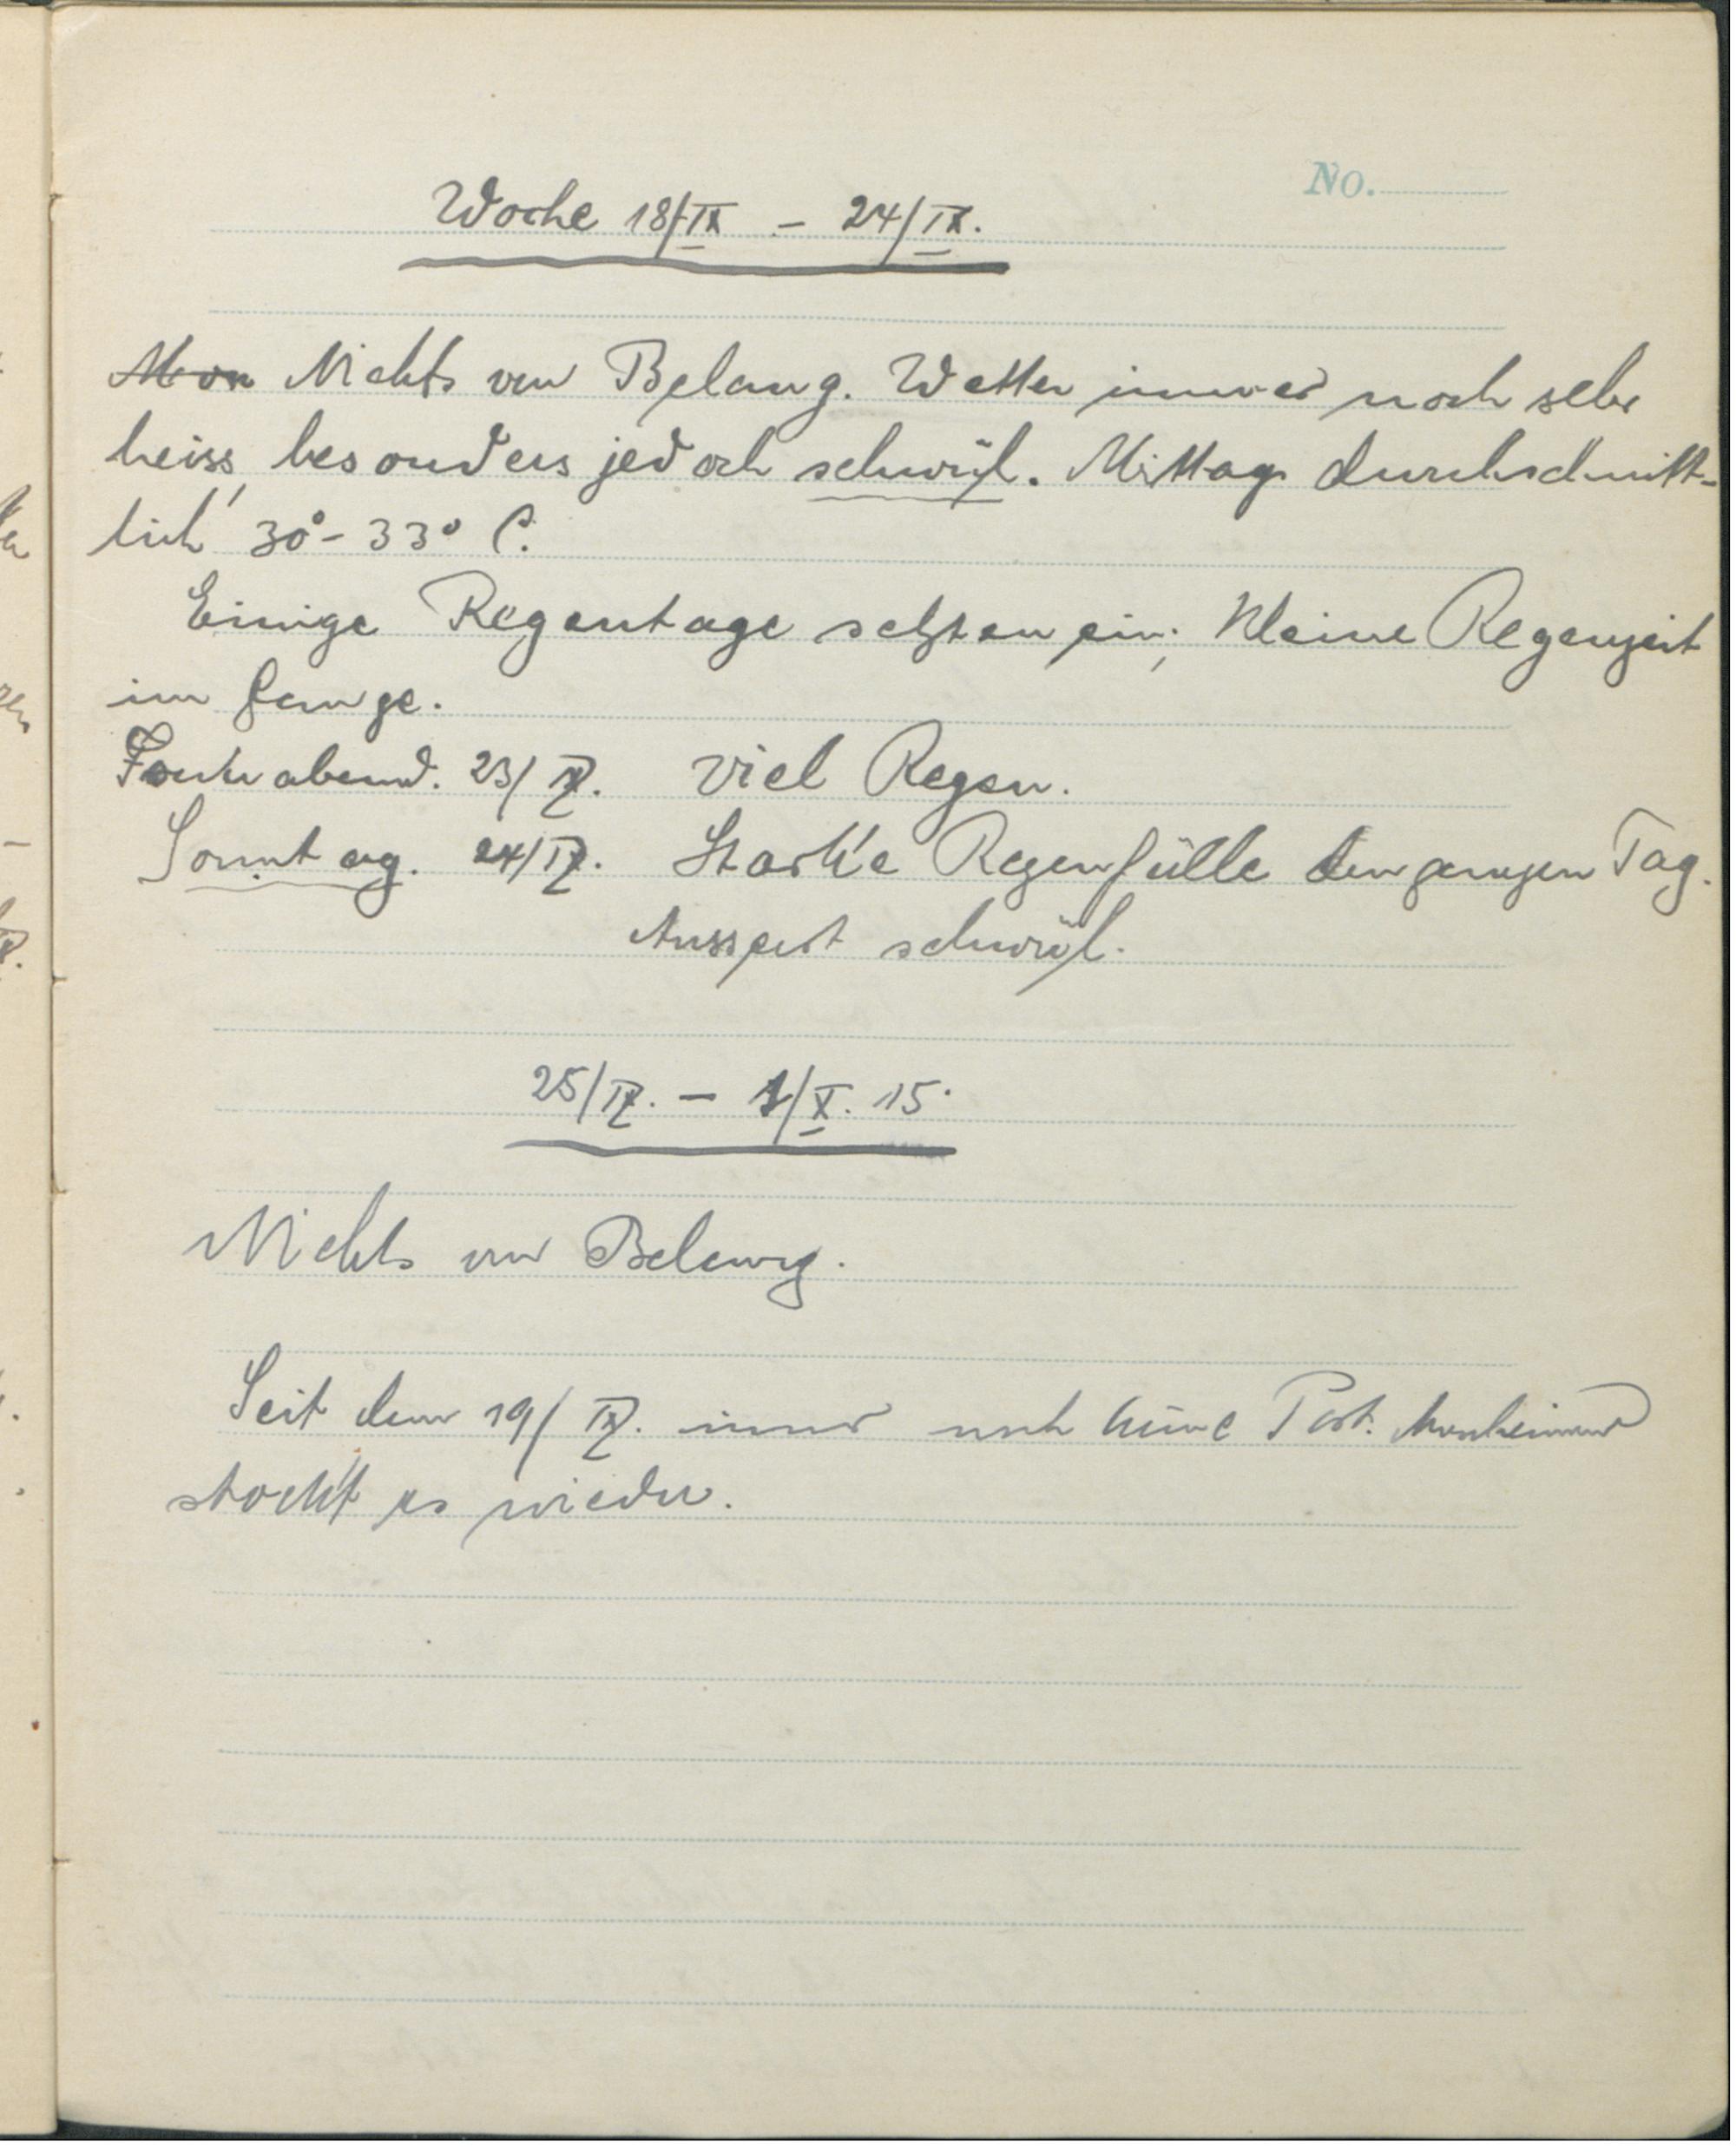 No.
Woche 18/IX – 24/IX.
Mon Nichts von Belang. Wetter immer noch sehr
heiss, besonders jedoch schwül. Mittags durchschnitt-
lich 30° - 33° C.
Einige Regentage setzten ein; kleine Regenzeit
im Gange.
abend. 23/IX. Viel Regen.
Sonntag. 24/IX. Starke Regenfülle den ganzen Tag.
Ausserst schwül.
25/IX. – 1/X. 15.
Nichts von Belang.
Seit dem 19/IX. immer noch keine Post. Anscheinend
stockt es wieder.